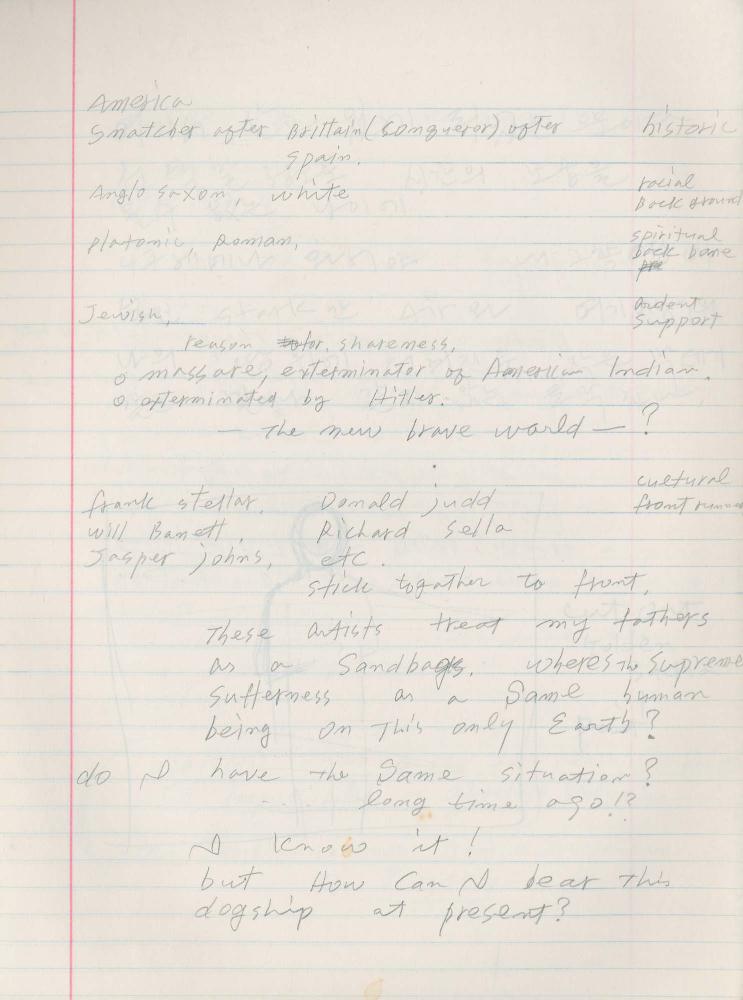 America
Snatcher after Brittain (Conqueror) after historic
Spain.
Anglo saxon, white racial
back ground
platonic, Roman, spiritual
back bone
Jewish, ardent
support
reason for, shareness,
o massare, exterminator of American Indian.
o exterminated by Hitler.
— The new brave world — ?
cultural
frank stellar, Donald judd front runner
will Barett, Richard Sella
Jasper johns, etc.
stick together to front,
These artists treat my fathers
as a Sandbags. wheres the Supreme
Sufferness as a Same human
being on This only Earth?
do I have the Same situation?
.... long time ago!?
I know it!
but How Can I bear This
dogship at present?